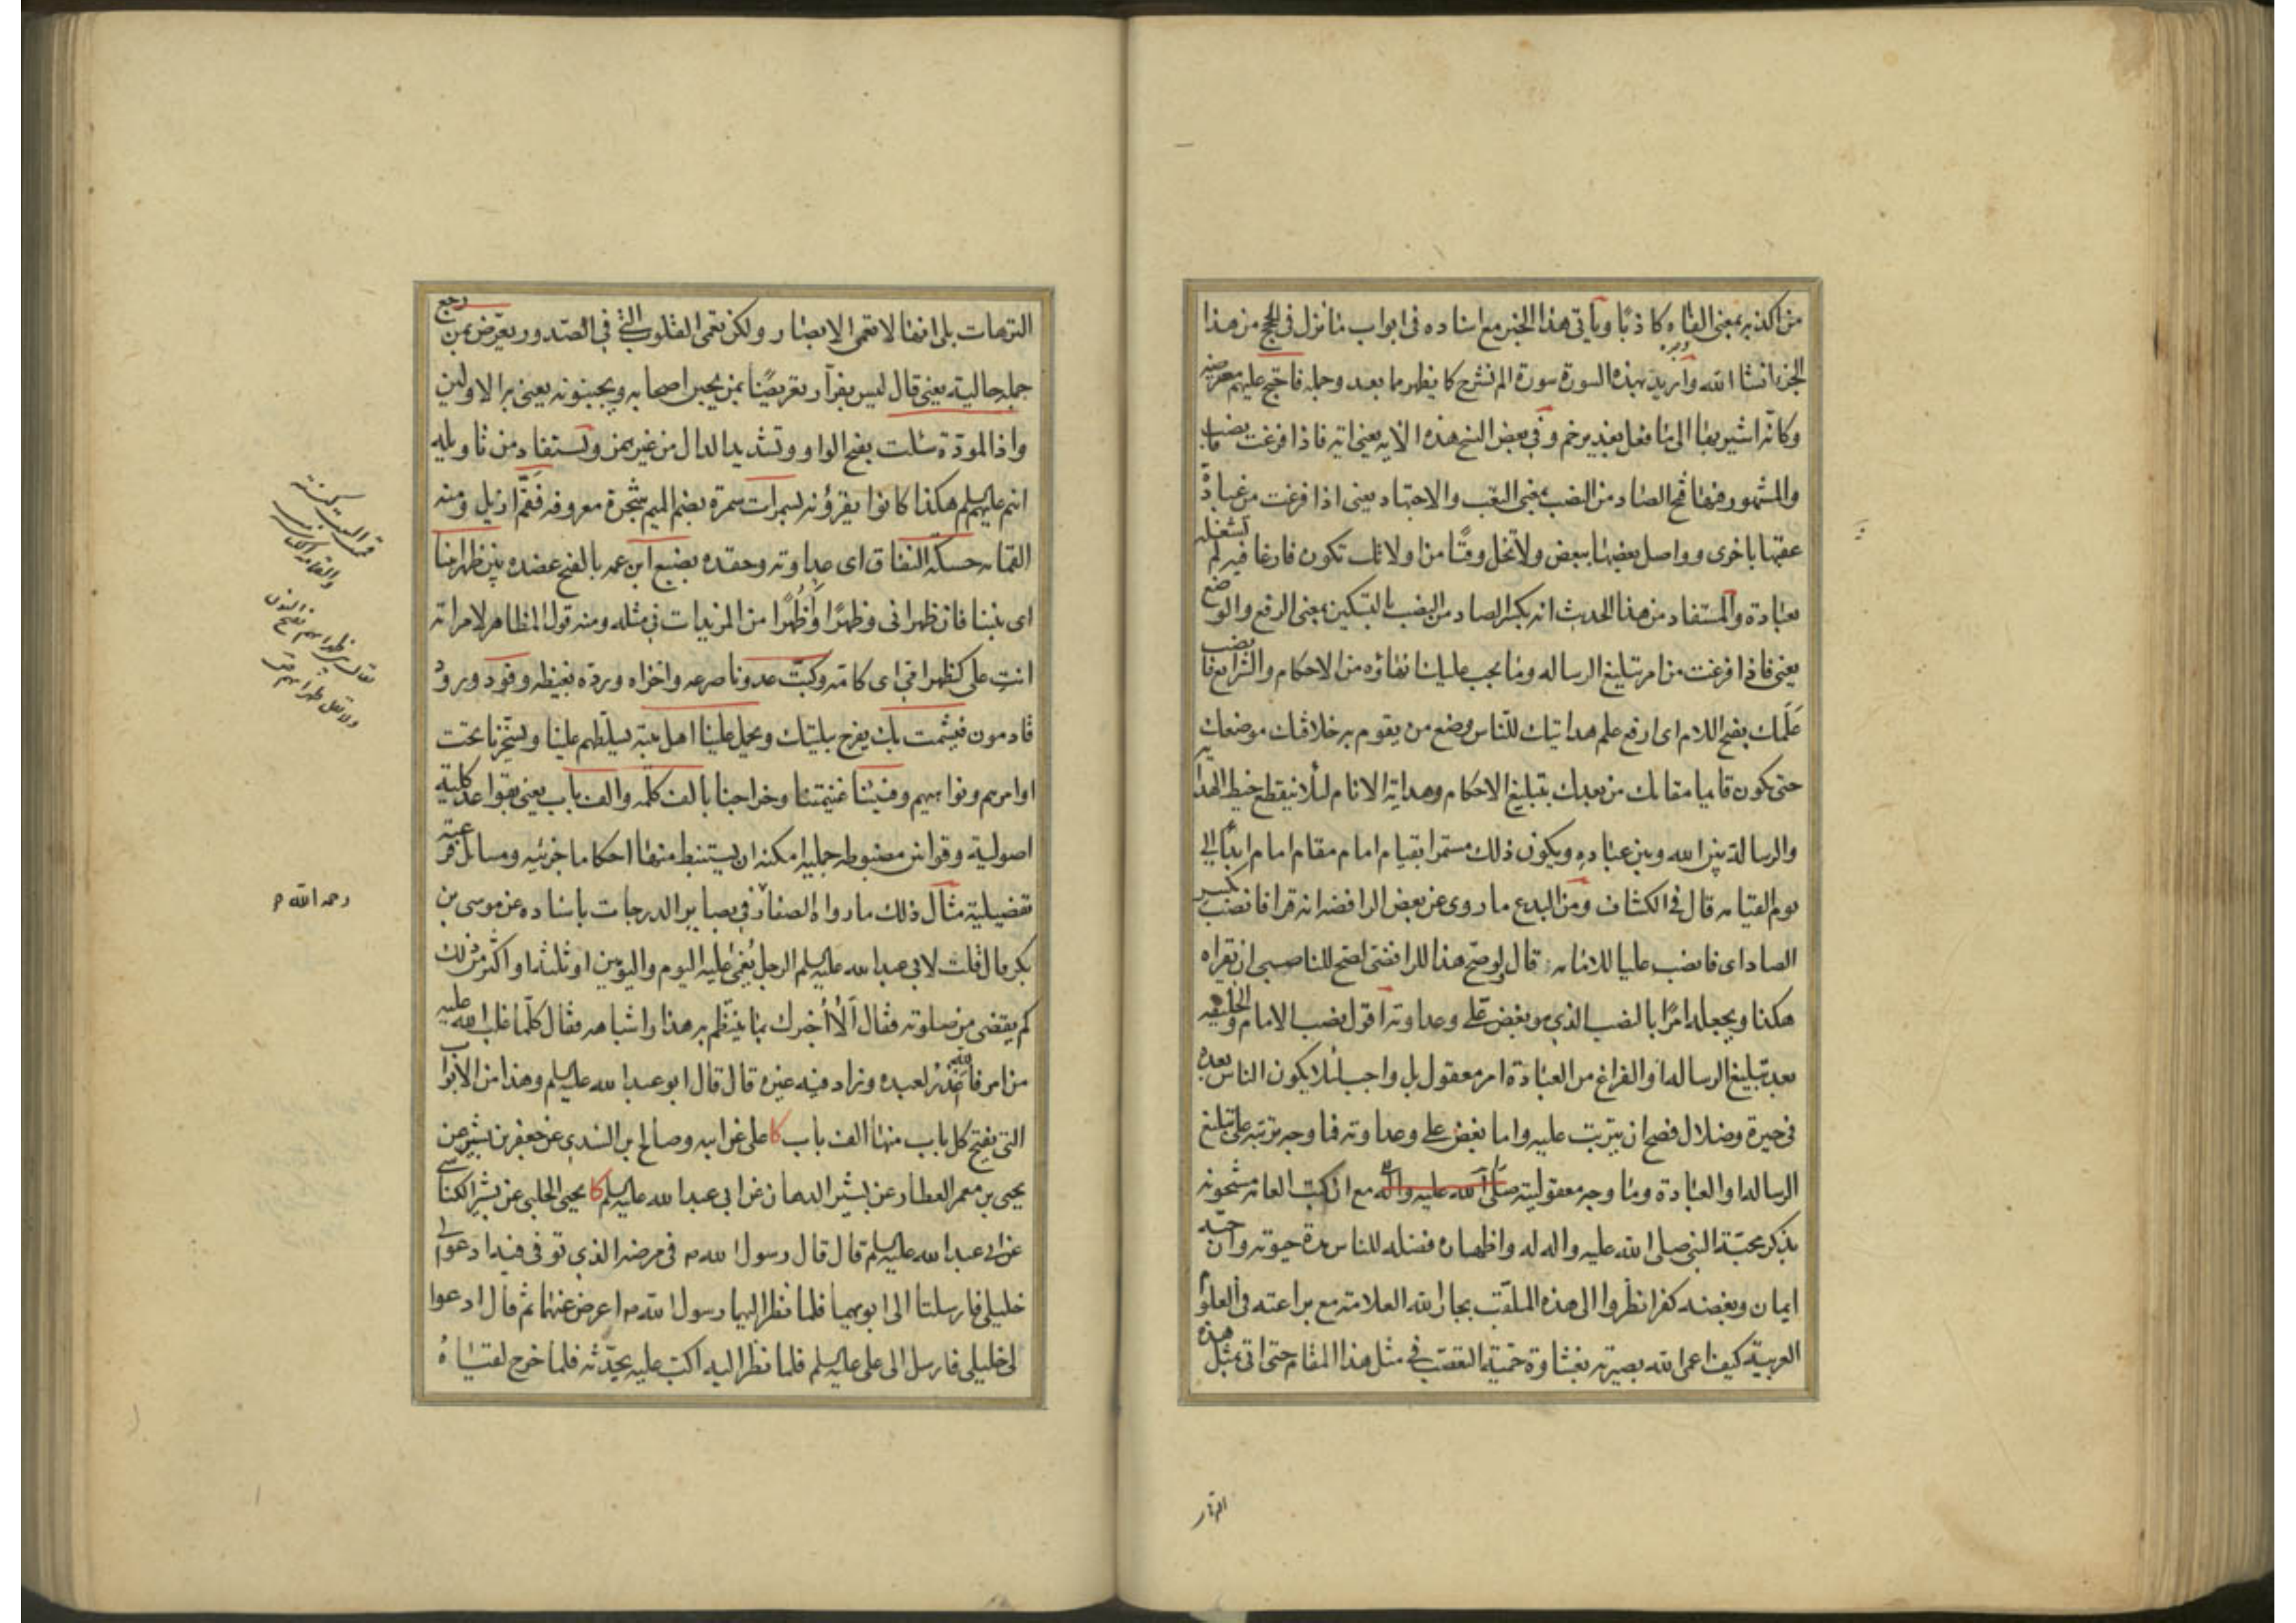 من اكذبه بمعنى الفاه كاذبا ويأتى هذا الخبر مع اسناده فى ابواب ما نزل فى الحج من هذا
الجزء انشاء الله واريد بهذه السورة سورة الم نشرح كما يظهر ما بعد وجملة فاحتج عليهم معترضه
وكانه اشير بها الى ما فعل بغدير خم وفى بعض النسخ هذه الاية يعنى اية فاذا فرغت فانصب
والمشهور فيها فتح الصاد من النصب بمعنى التعب والاجتهاد يعنى اذا فرغت من عبادة
عقبها باخرى وواصل بعضها ببعض ولا تخل وقتا من اوقاتك تكون فارغا فيه لم تشغله
بعبادة والمستفاد من هذا الحديث انه بكسر الصاد من النصب بالتسكين بمعنى الرفع والوضع
يعنى فاذا فرغت من امر تبليغ الرسالة وما يجب عليك انفاؤه من الاحكام والشرايع فانصب
علمك بفتح اللام اى ارفع علم هدايتك للناس وضع من يقوم به خلافتك موضعك
حتى يكون قائما مقامك من بعدك بتبليغ الاحكام وهداية الانام لئلا ينقطع خيط الهداية
والرسالة بين الله وبين عباده ويكون ذلك مستمرا بقيام امام مقام امام ابدا الى
يوم القيامه قال فى الكشاف ومن البدع ما روى عن بعض الرافضه انه قرا فانصب بكسر
الصاد اى فانصب عليا للامامه قال ولو صح هذا للرافضى لصح للناصبى ان يقراه
هكذا ويجعله امرا بالنصب الذى هو بغض على وعداوته اقول نصب الامام والخليفه
بعد تبليغ الرسالة او الفراغ من العبادة امر معقول بل واجب لئلا يكون الناس بعده
فى حيرة وضلال فصح ان يترتب عليه واما بغض على وعداوته فما وجه ترتبه على تبليغ
الرسالة او العبادة وما وجه معقوليته صلى الله عليه واله مع ان كتب العامه مشحونه
بذكر محبة النبى صلى الله عليه واله له واظهاره فضله للناس مدة حيوته وان حبه
ايمان وبغضه كفر انظروا الى هذه الملقب بجار الله العلامة مع براعته فى العلوم
العربية كيف اعمى الله بصيرته بغشاوة حمية التعصب فى مثل هذا المقام حتى اتى بمثل هذه
الترهات
الترهات بلى انها لا تعمى الابصار ولكن تعمى القلوب التى فى الصدور يعرض بمن رجع
جملة حالية يعنى قال ليس بفرار تعريضا بمن يجبن اصحابه ويجبنونه يعنى به الاولين
واذا المودة سئلت بفتح الواو وتشديد الدال من غير همز ويستفاد من تاويله
انهم عليهم السلم هكذا كانوا يقرؤنه لسمرات سمرة بضم الميم شجرة معروفه فقم ازيل ومنه
القمامه حسكة النفاق اى عداوته وحقده بضبع ابن عمه بالفتح عضده بين ظهرانينا
اى بيننا فان ظهرانى وظهرا واظهرا من المزيدات فى مثله ومنه قول المظاهر لامراته
انت على كظهر امى اى كامه وكبت عدونا صرعه واخزاه ورده بغيظه وفود ورود
قادمون فيشمت بك يفرح ببليتك ويحمل علينا اهل بيته يسلطهم علينا ويسخرنا تحت
اوامرهم ونواهيهم وفيئنا غنيمتنا وخراجنا بالف كلمه والف باب يعنى بقواعد كلية
اصولية وقوانين مضبوطه جمليه امكنه ان يستنبط منها احكاما جزئيه ومسائل فرعية
تفضيلية مثال ذلك ما رواه الصفار فى بصاير الدرجات باسناده عن موسى بن
بكر قال قلت لابى عبد الله عليه السلم الرجل يغمى عليه اليوم واليومين او ثلثة او اكثر من ذلك
كم يقضى من صلوته فقال الا اخبرك بما ينتظم به هذا واشباهه فقال كلما غلب الله عليه
من امر فالله اعذر لعبده وزاد فيه غيره قال قال ابو عبد الله عليه السلم وهذا من الابواب
التى يفتح كل باب منها الف باب كا على عن ابيه وصالح بن السندى عن جعفر بن بشير عن
يحيى بن معمر العطار عن بشير الدهان عن ابى عبد الله عليه السلم كا يحيى الحلبى عن بشير الكناسى
عن ابى عبد الله عليه السلم قال قال رسول الله ص فى مرضه الذى توفى فيه ادعوا لى
خليلى فارسلتا الى ابويهما فلما نظر اليهما رسول الله ص اعرض عنهما ثم قال ادعوا
لى خليلى فارسل الى على عليه السلم فلما نظر اليه اكب عليه يحدثه فلما خرج لقياه
رحمه الله م